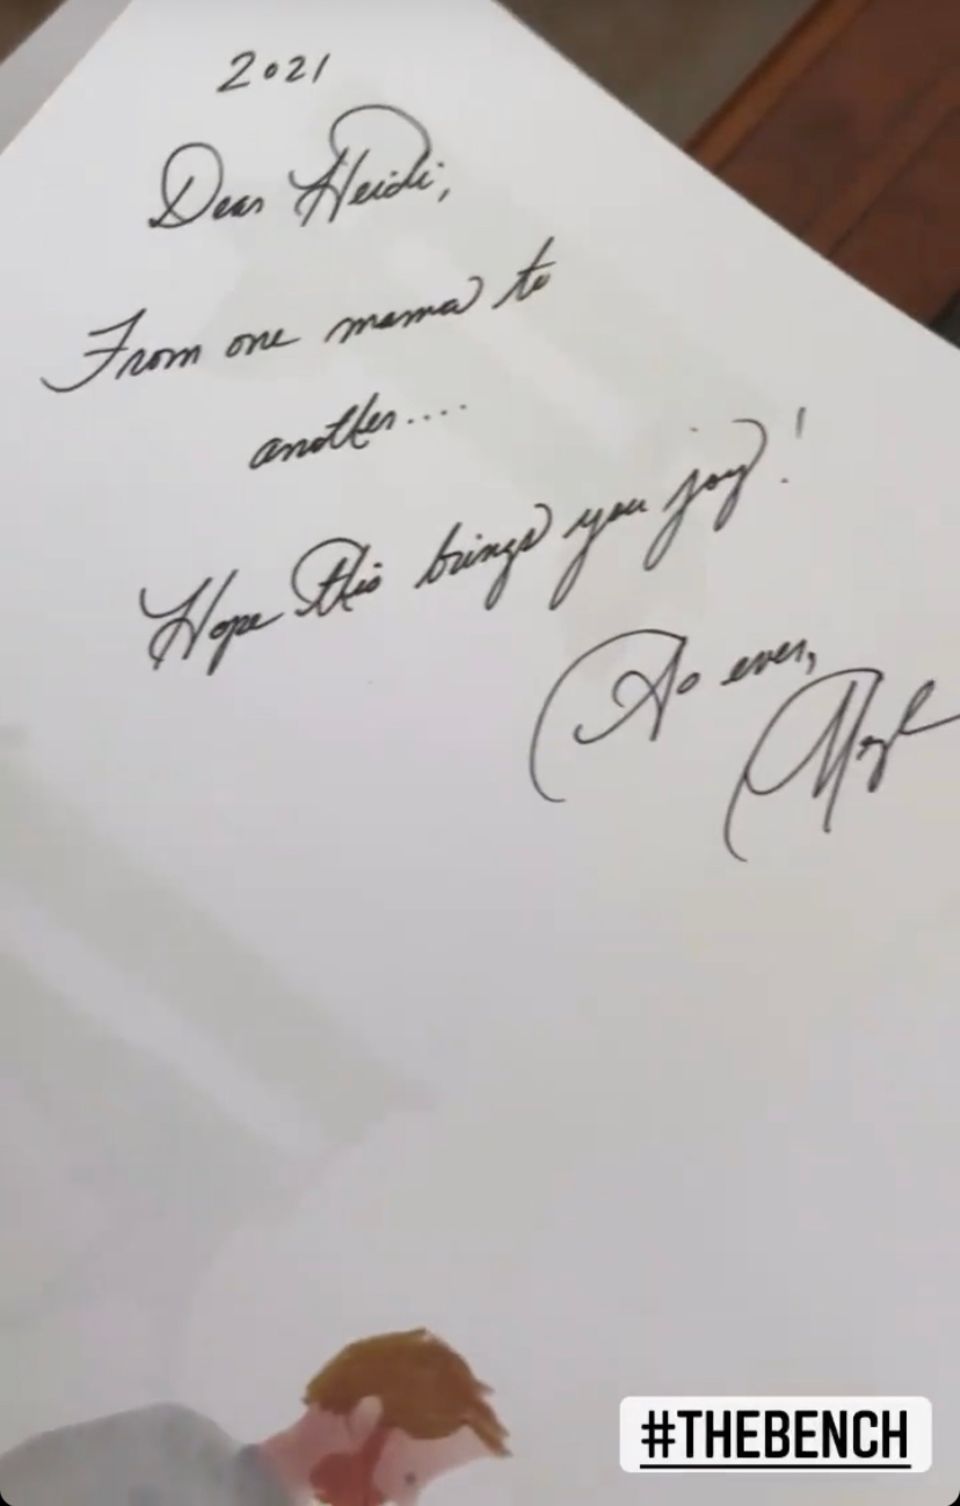 2021
Dear Heidi,
From one mama to
another....
Hope this brings you joy!
As ever,
#THEBENCH